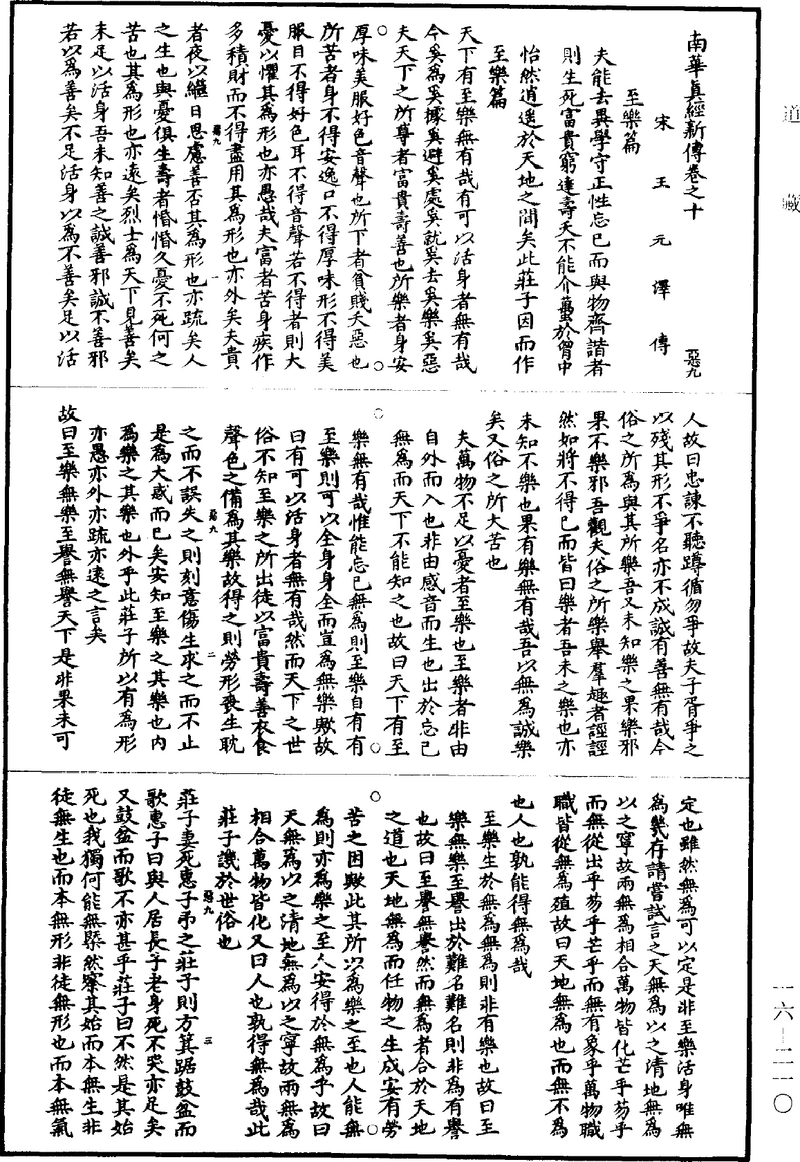 道藏
南華真經新傳卷之十 惡九
宋王元澤傳
至樂篇
夫能去異學守正性忘已而與物齊諧者
則生死富貴窮達壽夭不能介蠆於胷中
怡然逍遥於天地之間矣此莊子因而作
至樂篇
天下有至樂無有哉有可以活身者無有哉
今奚為奚據奚避奚處奚就奚去奚樂奚惡
夫天下之所尊者富貴壽善也所樂者身安
厚味美服好色音聲也所下者貧賤夭惡也
所苦者身不得安逸口不得厚味形不得美
服目不得好色耳不得音聲若不得者則大
憂以懼其為形也亦愚哉夫富者苦身疾作
多積財而不得盡用其為形也亦外矣夫貴
惡九 一
者夜以繼日思慮善否其為形也亦疏矣人
之生也與憂俱生壽者惛惛久憂不死何之
苦也其為形也亦遠矣烈士為天下見善矣
未足以活身吾未知善之誠善邪誠不善邪
若以為善矣不足活身以為不善矣足以活
人故曰忠諫不聽蹲循勿爭故夫子胥爭之
以殘其形不爭名亦不成誠有善無有哉今
俗之所為與其所樂吾又未知樂之果樂邪
果不樂邪吾觀夫俗之所樂舉羣趣者誙誙
然如將不得已而皆曰樂者吾未之樂也亦
未知不樂也果有樂無有哉吾以無為誠樂
矣又俗之所大苦也
夫萬物不足以憂者至樂也至樂者非由
自外而入也非由感音而生也出於忘已
無為而天下不能知之也故曰天下有至
樂無有哉惟能忘已無為則至樂自有有
至樂則可以全身身全而豈為無樂歟故
曰有可以活身者無有哉然而天下之世
俗不知至樂之所出徒以富貴壽善衣食
聲色之備為其樂故得之則勞形喪生耽
惡九 二
之而不誤失之則刻意傷生求之而不止
是為大惑而已矣安知至樂之其樂也内
為樂之其樂也外乎此莊子所以有為形
亦愚亦外亦疏亦遠之言矣
故曰至樂無樂至譽無譽天下是非果未可
定也雖然無為可以定是非至樂活身唯無
為幾存請嘗試言之天無為以之清地無為
以之寧故兩無為相合萬物皆化芒乎芴乎
而無從出乎芴乎芒乎而無有象乎萬物職
職皆從無為殖故曰天地無為也而無不為
也人也孰能得無為哉
至樂生於無為無為則非有樂也故曰至
樂無樂至譽出於難名難名則非為有譽
也故曰至譽無譽然而無為者合於天地
之道也天地無為而任物之生成安有勞
苦之困歟此其所以為樂之至也人能無
為則亦為樂之至人安得於無為乎故曰
天無為以之清地無為以之寧故兩無為
相合萬物皆化又曰人也孰得無為哉此
莊子譏於世俗也
惡九 三
莊子妻死惠子弔之莊子則方箕踞鼓盆而
歌惠子曰與人居長子老身死不哭亦足矣
又鼓盆而歌不亦甚乎莊子曰不然是其始
死也我獨何能無槩然察其始而本無生非
徒無生也而本無形非徒無形也而本無氣
一六—二一〇